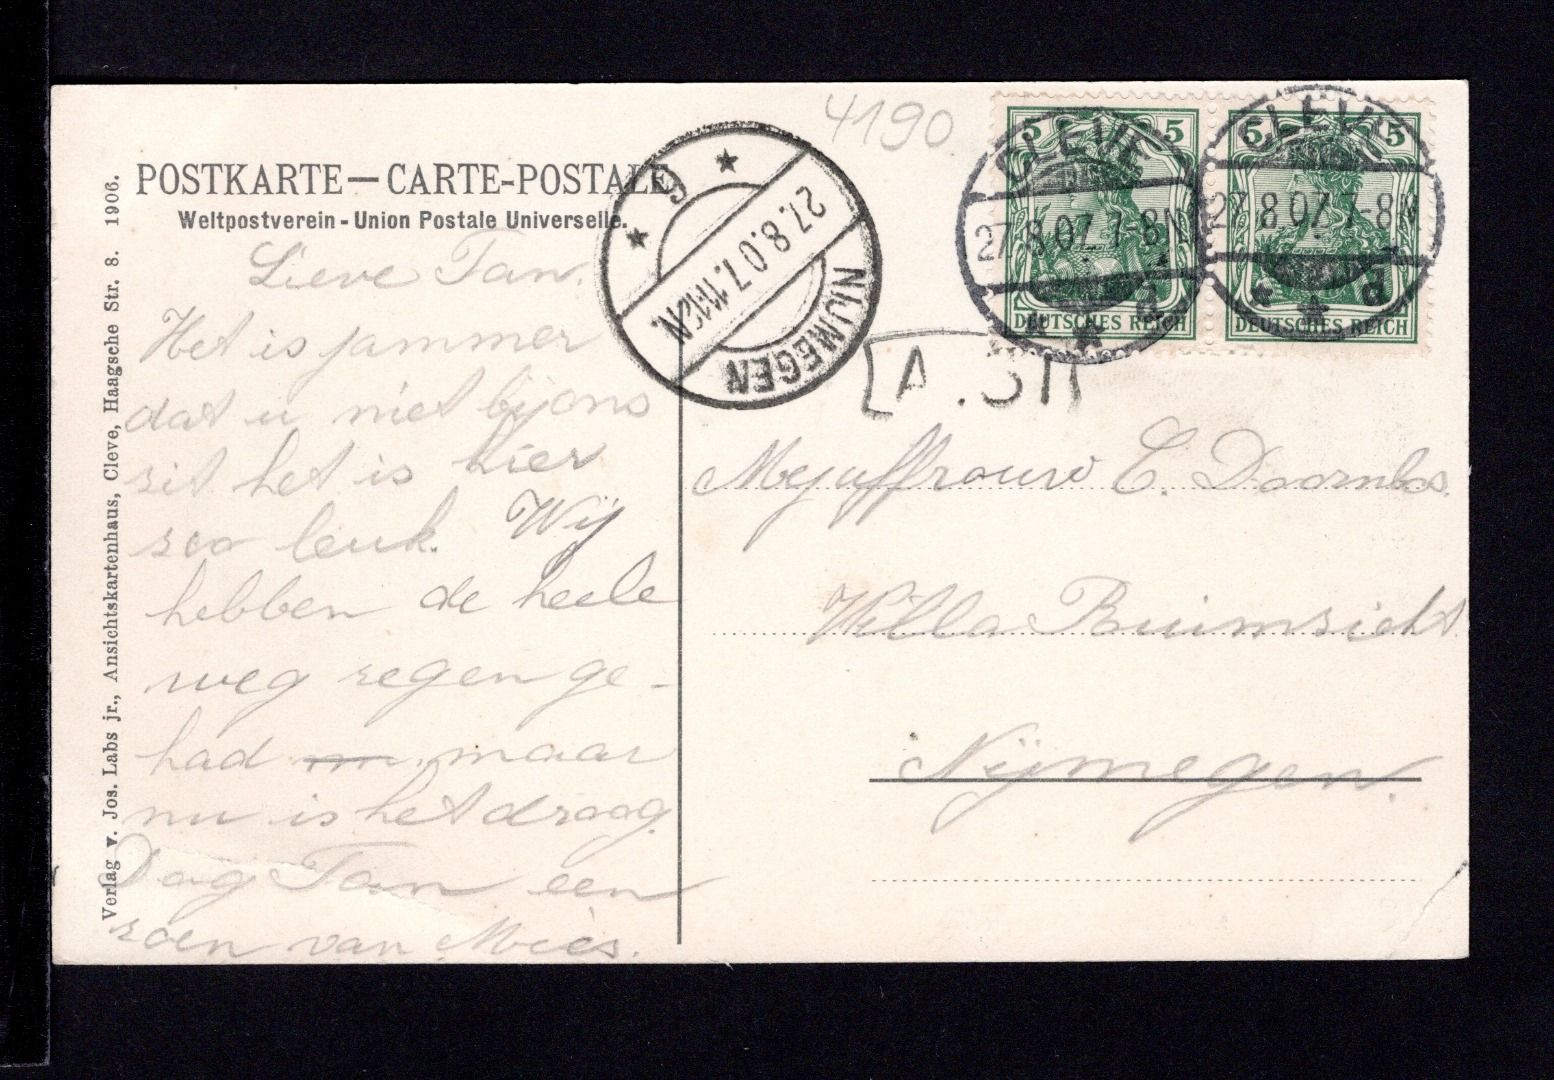 4190
POSTKARTE — CARTE-POSTALE
Weltpostverein - Union Postale Universelle.
Verlag v. Jos. Labs jr., Ansichtskartenhaus, Cleve, Haagsche Str. 8. 1906.
9
27.8.07.11-12N.
NIJMEGEN
5 5
CLEVE
27.8.07.7-8N
d
DEUTSCHES REICH
5 5
CLEVE
27.8.07.7-8N
d
DEUTSCHES REICH
Lieve Tan.
Het is jammer
dat u niet bij ons
zit het is hier
zoo leuk. Wij
hebben de heele
weg regen ge-
had maar
nu is het droog.
Dag Tan een
zoen van Mies.
Mejuffrouw E. Doornbos.
Villa Ruimzicht.
Nijmegen.